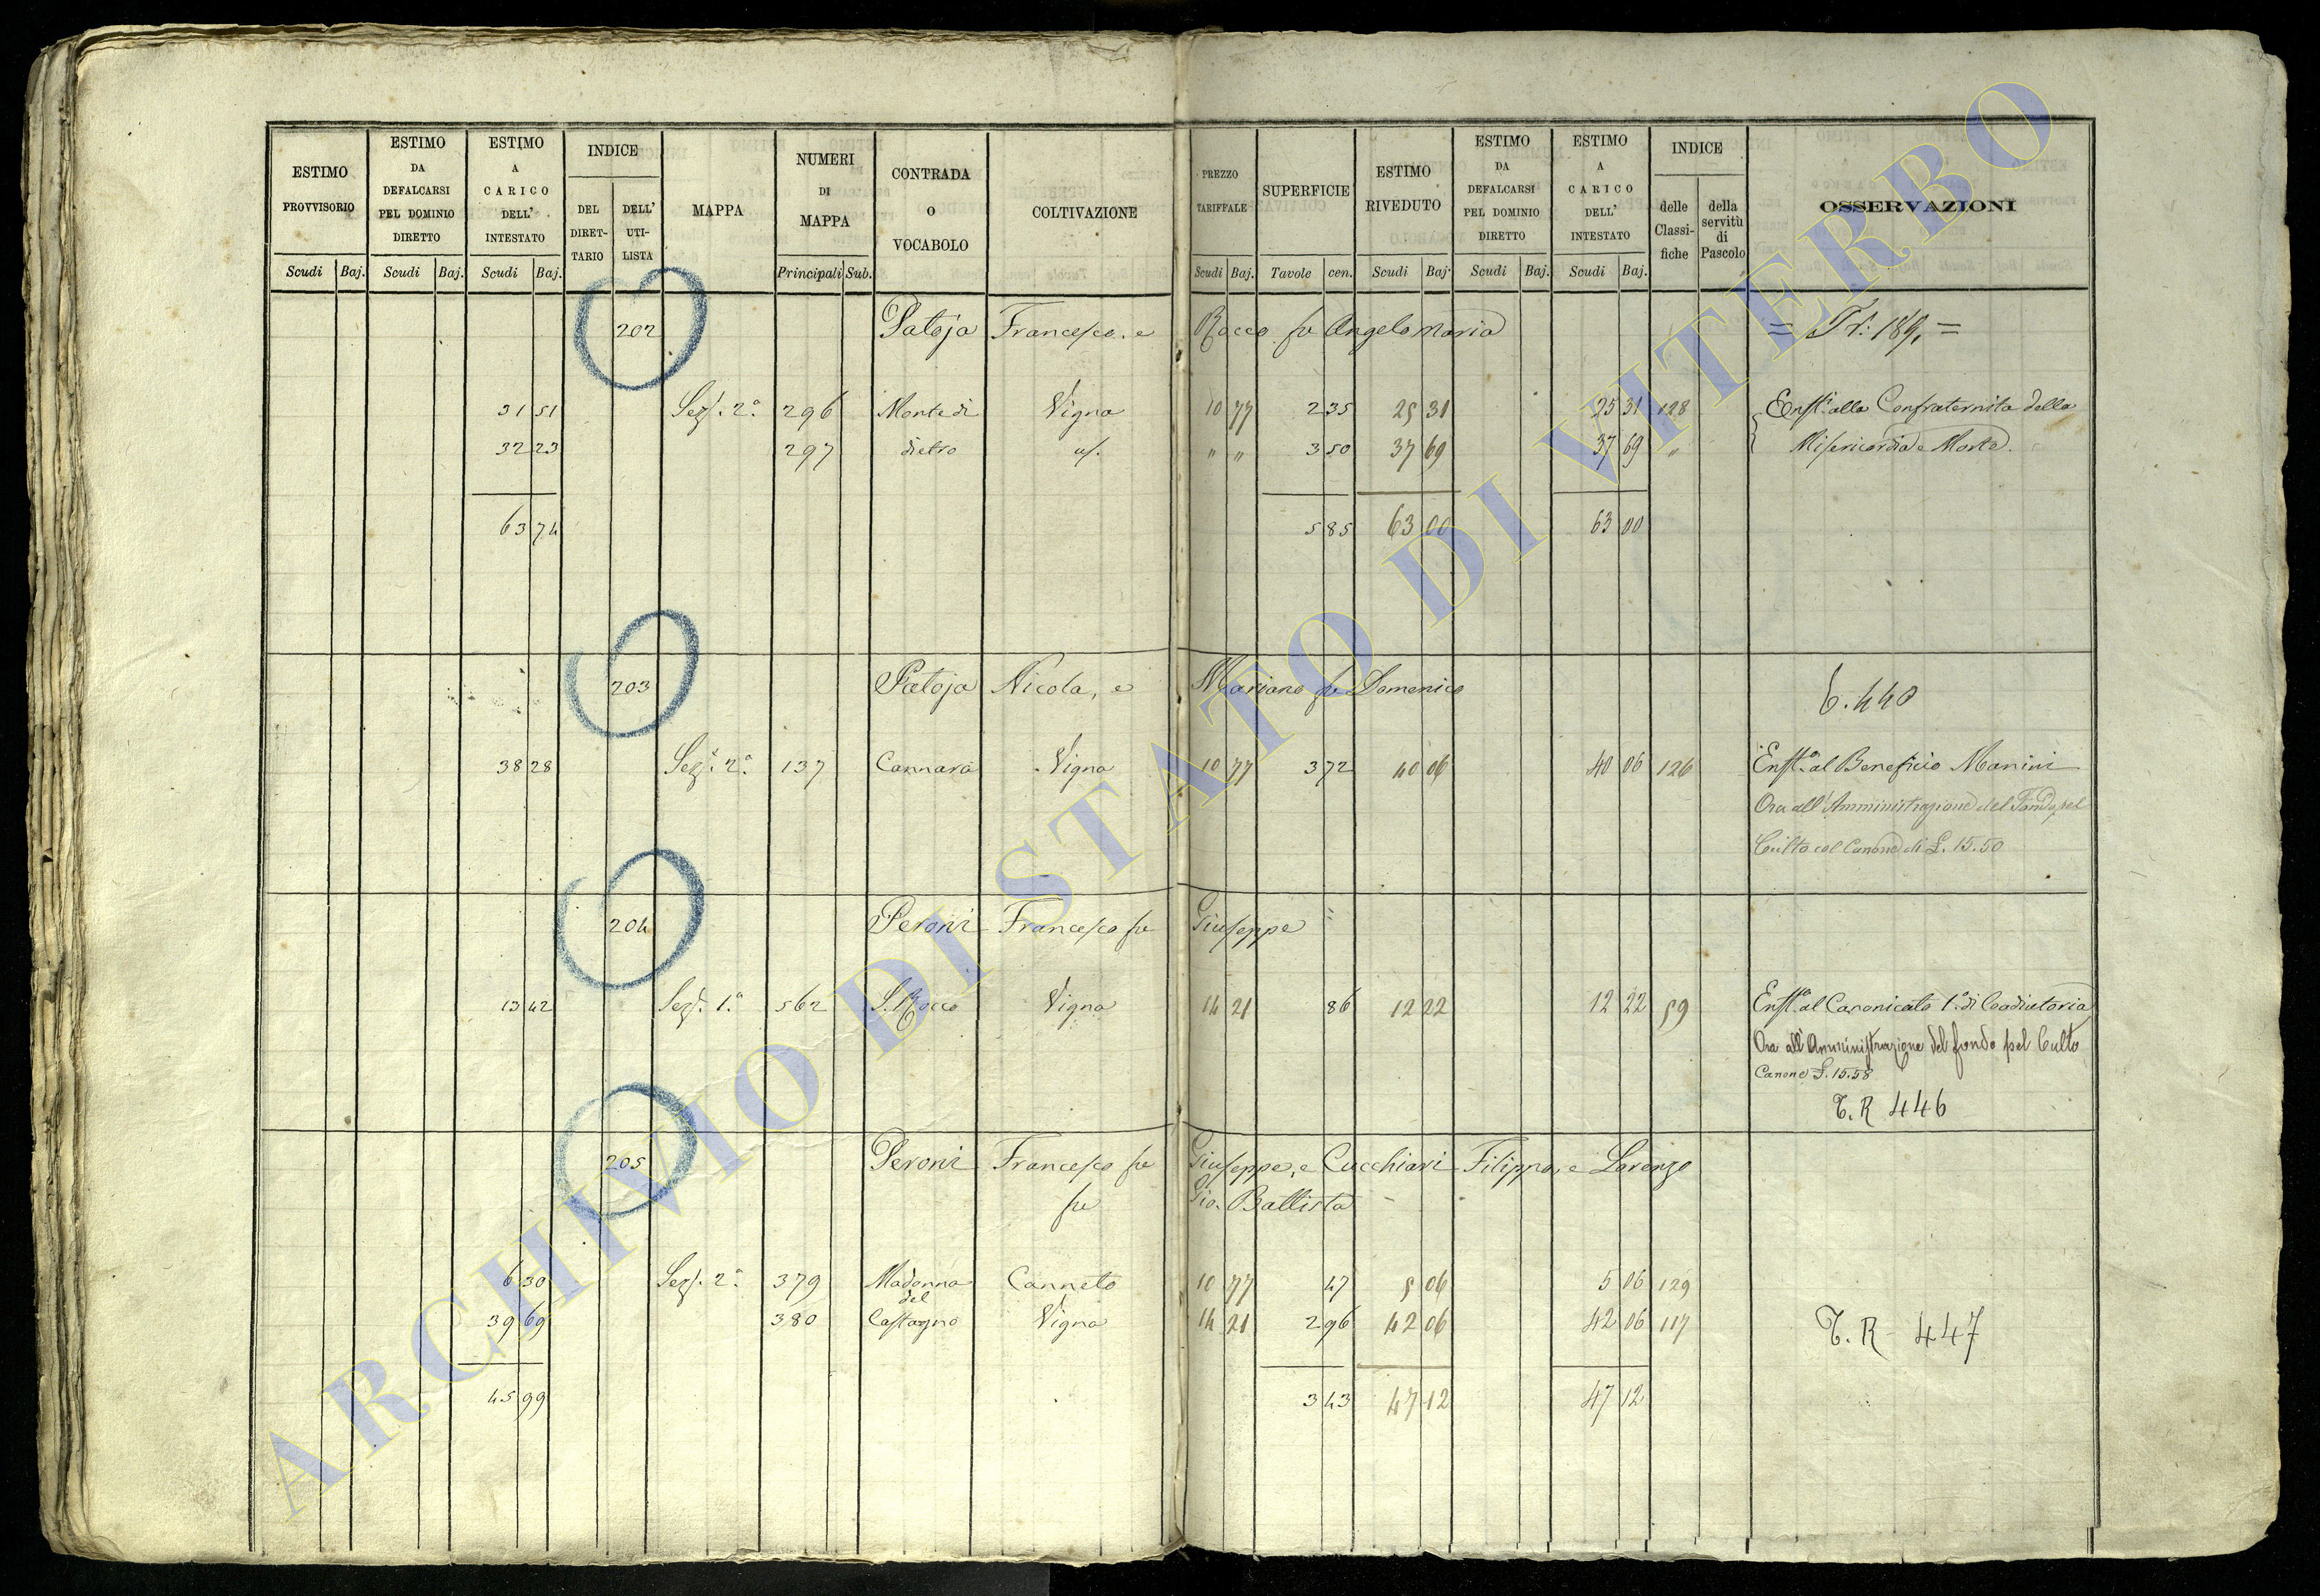 ESTIMO PROVVISORIO
ESTIMO DA DEFALCARSI PEL DOMINIO DIRETTO
ESTIMO A CARICO DELL' INTESTATO
INDICE
DEL DIRET-TARIO
DELL' UTI-LISTA
MAPPA
NUMERI DI MAPPA
CONTRADA O VOCABOLO
COLTIVAZIONE
PREZZO TARIFFALE
SUPERFICIE
ESTIMO RIVEDUTO
ESTIMO DA DEFALCARSI PEL DOMINIO DIRETTO
ESTIMO A CARICO DELL' INTESTATO
INDICE
delle Classi-fiche
della servitù di Pascolo
OSSERVAZIONI
Scudi Baj. Scudi Baj. Scudi Baj. Principali Sub. Scudi Baj. Tavole cen. Scudi Baj. Scudi Baj. Scudi Baj.
202 Patoja Francesco, e Rocco fu Angelo Maria
31 51 Sez. 2.a 296 Monte di Vigna 10 77 2 35 25 31 25 31 128 Enft. alla Confraternita della
32 23 297 dietro id. " " 3 50 37 69 37 69 " Misericordia e Morte.
63 74 5 85 63 00 63 00
203 Patoja Nicola, e Mariano fu Domenico
38 28 Sez. 2.a 137 Cannara Vigna 10 77 3 72 40 06 40 06 126 Enft.a al Beneficio Manini
Ora all'Amministrazione del Fondo pel
Culto col Canone di L. 15.50
204 Peroni Francesco fu Giuseppe =
13 42 Sez. 1.a 562 S. Rocco Vigna 14 21 86 12 22 12 22 59 Enft.a al Canonicato 1.o di Coadiutoria
Ora all'Amministrazione del fondo pel Culto
Canone L. 15.58
T. R 446
205 Peroni Francesco fu Giuseppe, e Cucchiari Filippo, e Lorenzo
fu Gio. Battista
6 30 Sez. 2.a 379 Madonna Canneto 10 77 47 5 06 5 06 129
del
39 69 380 Castagno Vigna 14 21 2 96 42 06 42 06 117
T. R 447
45 99 3 43 47 12 47 12
ARCHIVIO DI STATO DI VITERBO